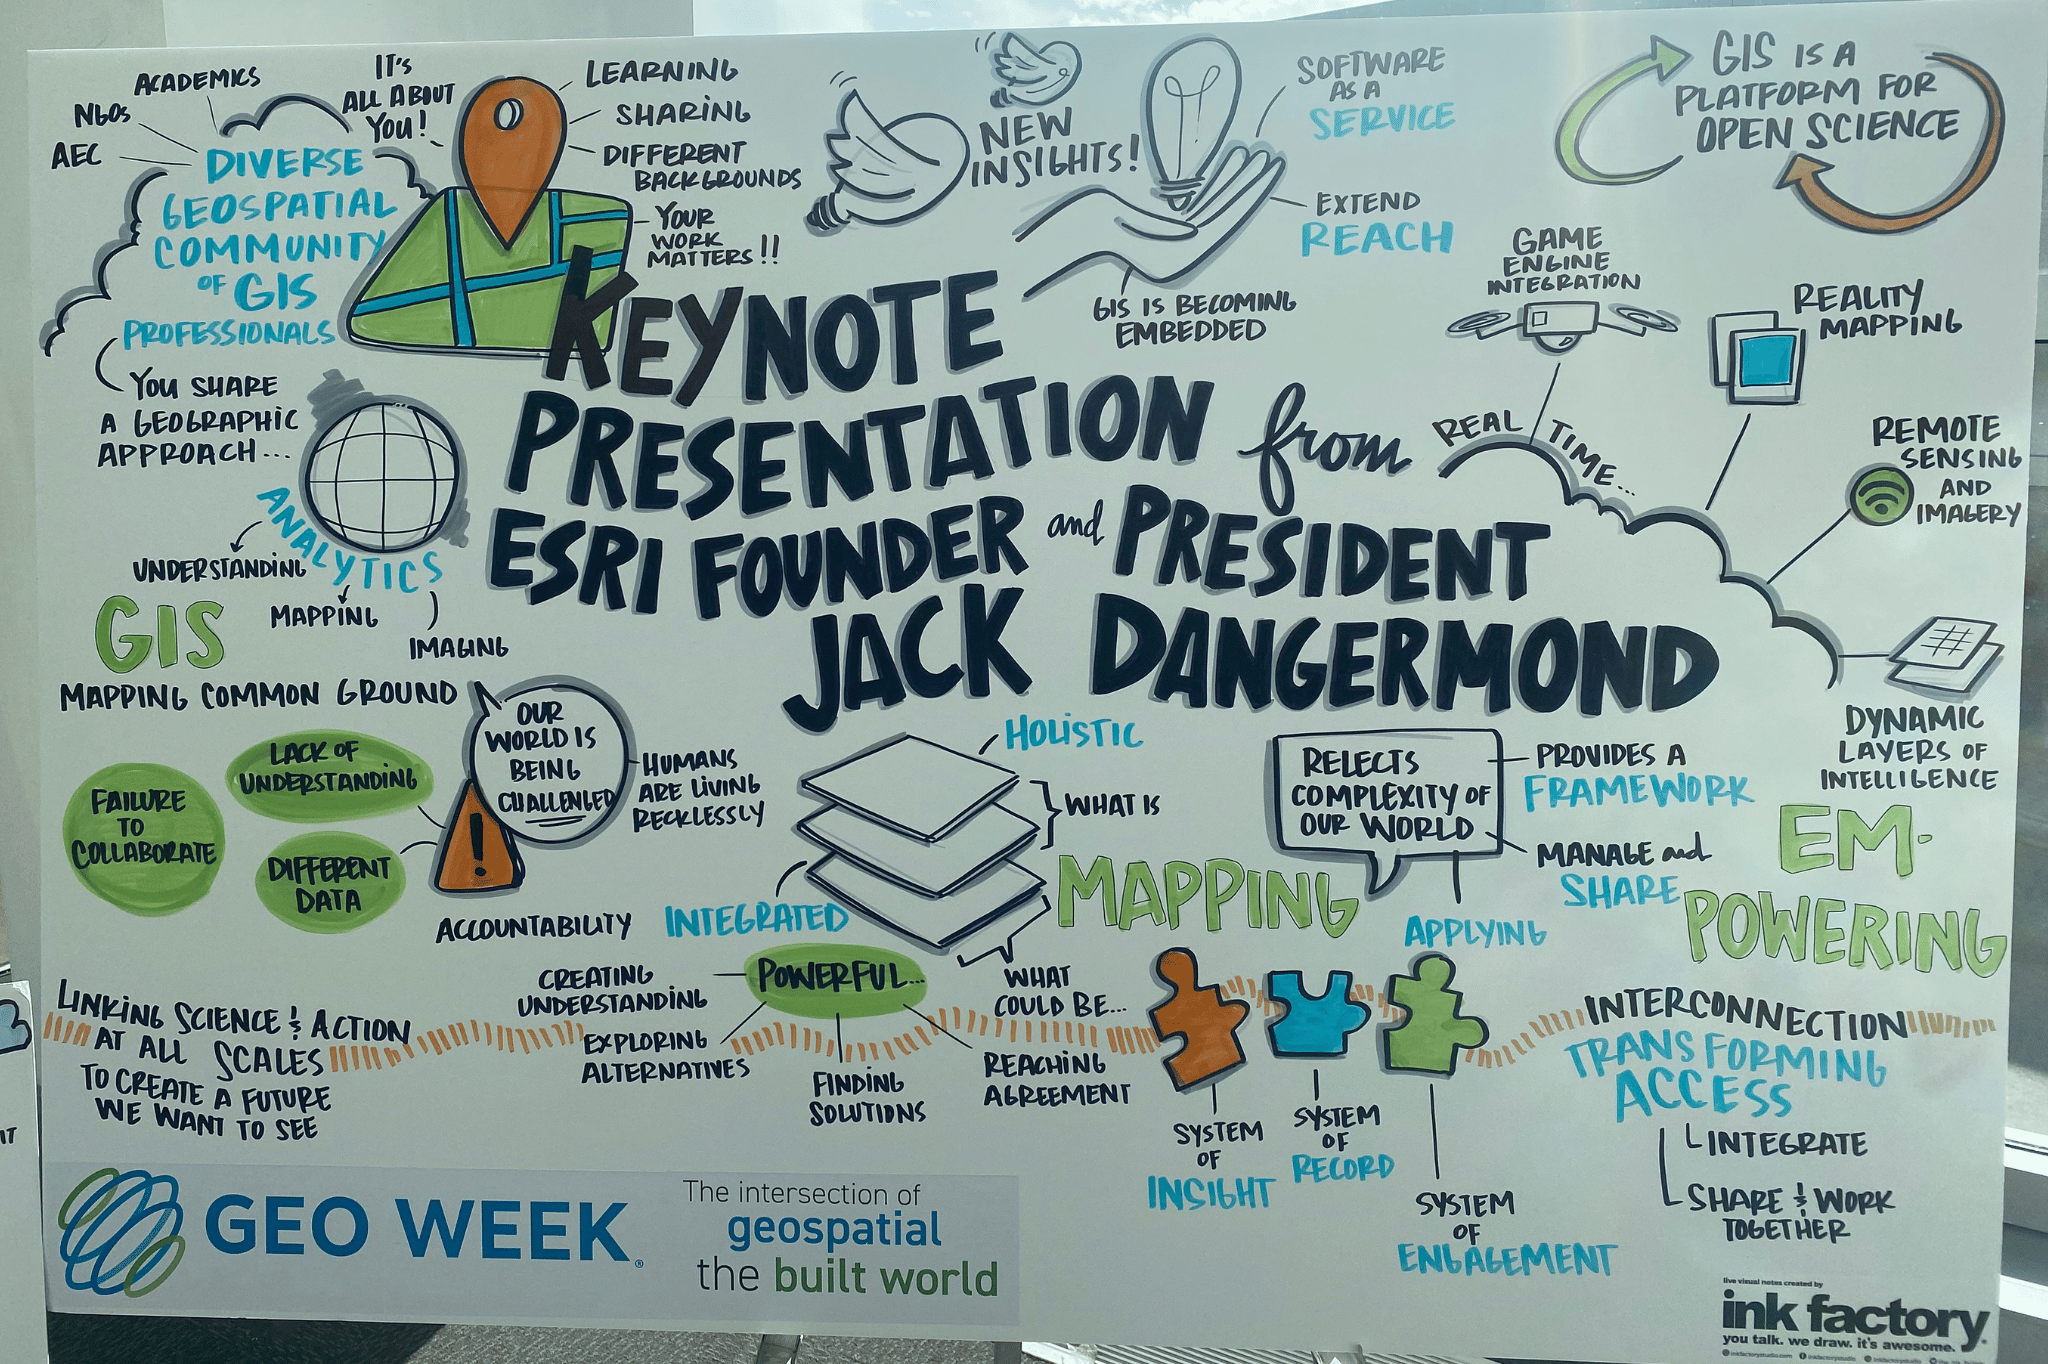 ACADEMICS
NGOs
AEC
DIVERSE
GEOSPATIAL
COMMUNITY
OF GIS
PROFESSIONALS
IT'S
ALL ABOUT
YOU!
LEARNING
SHARING
DIFFERENT
BACKGROUNDS
YOUR
WORK
MATTERS!!
NEW
INSIGHTS!
SOFTWARE
AS A
SERVICE
EXTEND
REACH
GIS IS BECOMING
EMBEDDED
GIS IS A
PLATFORM FOR
OPEN SCIENCE
GAME
ENGINE
INTEGRATION
REALITY
MAPPING
REAL TIME...
REMOTE
SENSING
AND
IMAGERY
DYNAMIC
LAYERS OF
INTELLIGENCE
YOU SHARE
A GEOGRAPHIC
APPROACH...
ANALYTICS
UNDERSTANDING
MAPPING
IMAGING
KEYNOTE
PRESENTATION from
ESRI FOUNDER and PRESIDENT
JACK DANGERMOND
GIS
MAPPING COMMON GROUND
OUR
WORLD IS
BEING
CHALLENGED
HUMANS
ARE LIVING
RECKLESSLY
LACK OF
UNDERSTANDING
FAILURE
TO
COLLABORATE
DIFFERENT
DATA
!
ACCOUNTABILITY
HOLISTIC
WHAT IS
INTEGRATED
MAPPING
WHAT
COULD BE...
RELECTS
COMPLEXITY OF
OUR WORLD
PROVIDES A
FRAMEWORK
MANAGE and
SHARE
APPLYING
EM-
POWERING
LINKING SCIENCE & ACTION
AT ALL SCALES
TO CREATE A FUTURE
WE WANT TO SEE
POWERFUL...
CREATING
UNDERSTANDING
EXPLORING
ALTERNATIVES
FINDING
SOLUTIONS
REACHING
AGREEMENT
SYSTEM
OF
INSIGHT
SYSTEM
OF
RECORD
SYSTEM
OF
ENGAGEMENT
INTERCONNECTION
TRANSFORMING
ACCESS
INTEGRATE
SHARE & WORK
TOGETHER
IT
GEO WEEK®
The intersection of
geospatial
the built world
live visual notes created by
ink factory
you talk. we draw. it's awesome.
inkfactorystudio.com